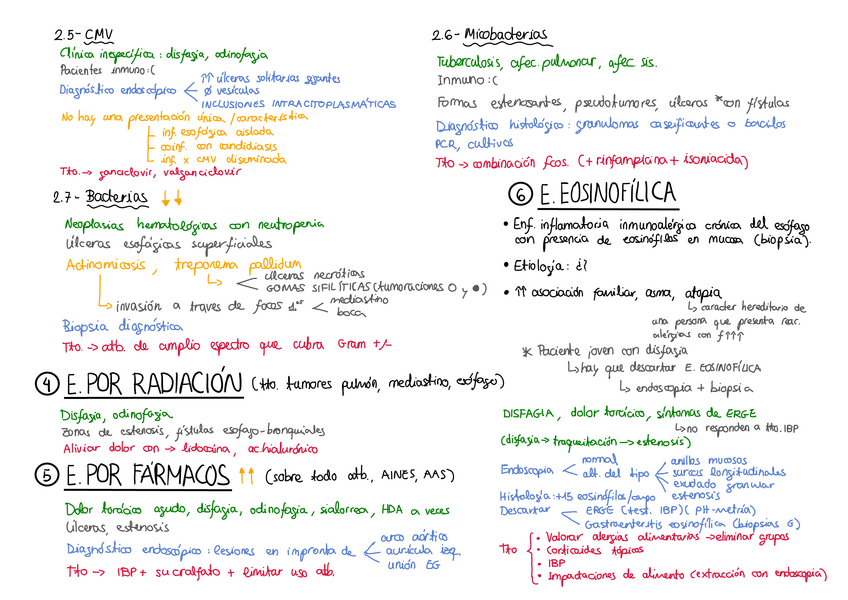 2.5- CMV
Clínica inespecífica: disfagia, odinofagia
Pacientes inmuno :(
Diagnóstico endoscópico
↑↑ úlceras solitarias gigantes
Ø vesículas
INCLUSIONES INTRACITOPLASMÁTICAS
No hay una presentación única / característica
inf. esofágica aislada
coinf. con candidiasis
inf. x CMV diseminada
Tto. → ganciclovir, valganciclovir
2.7- Bacterias ↓↓
Neoplasias hematológicas con neutropenia
Úlceras esofágicas superficiales
Actinomicosis, treponema pallidum
úlceras necróticas
GOMAS SIFILÍTICAS (tumoraciones O y ●)
invasión a traves de focos 1ºs
mediastino
boca
Biopsia diagnóstica
Tto. → atb. de amplio espectro que cubra Gram +/-
4 E. POR RADIACIÓN (tto. tumores pulmón, mediastino, esófago)
Disfagia, odinofagia
Zonas de estenosis, fístulas esofago-bronquiales
Aliviar dolor con → lidocaína, ac. hialurónico
5 E. POR FÁRMACOS ↑↑ (sobre todo atb., AINES, AAS)
Dolor torácico agudo, disfagia, odinofagia, sialorrea, HDA a veces
Úlceras, estenosis
Diagnóstico endoscópico: lesiones en impronta de
arco aórtico
aurícula izq.
unión EG
Tto → IBP + sucralfato + limitar uso atb.
2.6- Micobacterias
Tuberculosis, afec. pulmonar, afec sis.
Inmuno :(
Formas estenosantes, pseudotumores, úlceras *con fístulas
Diagnóstico histológico: granulomas caseificantes o bacilos
PCR, cultivos
Tto → combinación fcos. (+ rinfampicina + isoniacida)
6 E. EOSINOFÍLICA
• Enf. inflamatoria inmunoalérgica crónica del esófago
con presencia de eosinófilos en mucosa (biopsia).
• Etiología: ¿?
• ↑↑ asociación familiar, asma, atopia
↳ caracter hereditario de
una persona que presenta reac.
alérgias con f↑↑↑
* Paciente joven con disfagia
↳ hay que descartar E. EOSINOFÍLICA
↳ endoscopia + biopsia
DISFAGIA, dolor torácico, síntomas de ERGE
↳ no responden a tto. IBP
(disfagia → traqueitación → estenosis)
Endoscopia
normal
alt. del tipo
anillos mucosos
surcos longitudinales
exudado granular
estenosis
Histología: +15 eosinófilos/campo
Descartar
ERGE (test. IBP) (PH-metría)
Gastroenteritis eosinofílica (biopsias G)
Tto
• Valorar alergias alimentarias → eliminar grupos
• Corticoides tópicos
• IBP
• Impactaciones de alimento (extracción con endoscopia)